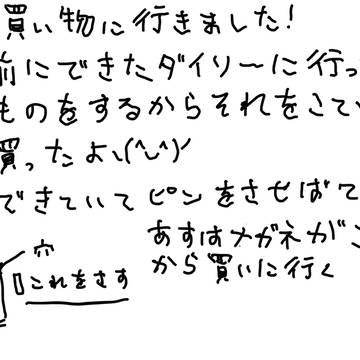 買い物に行きました!
前にできたダイソーに行っ
ものをするからそれをさ
買ったよ\(^◡^)/
できていてピンをさせば
あすはメガネが
から買いに行く
穴
これをさす